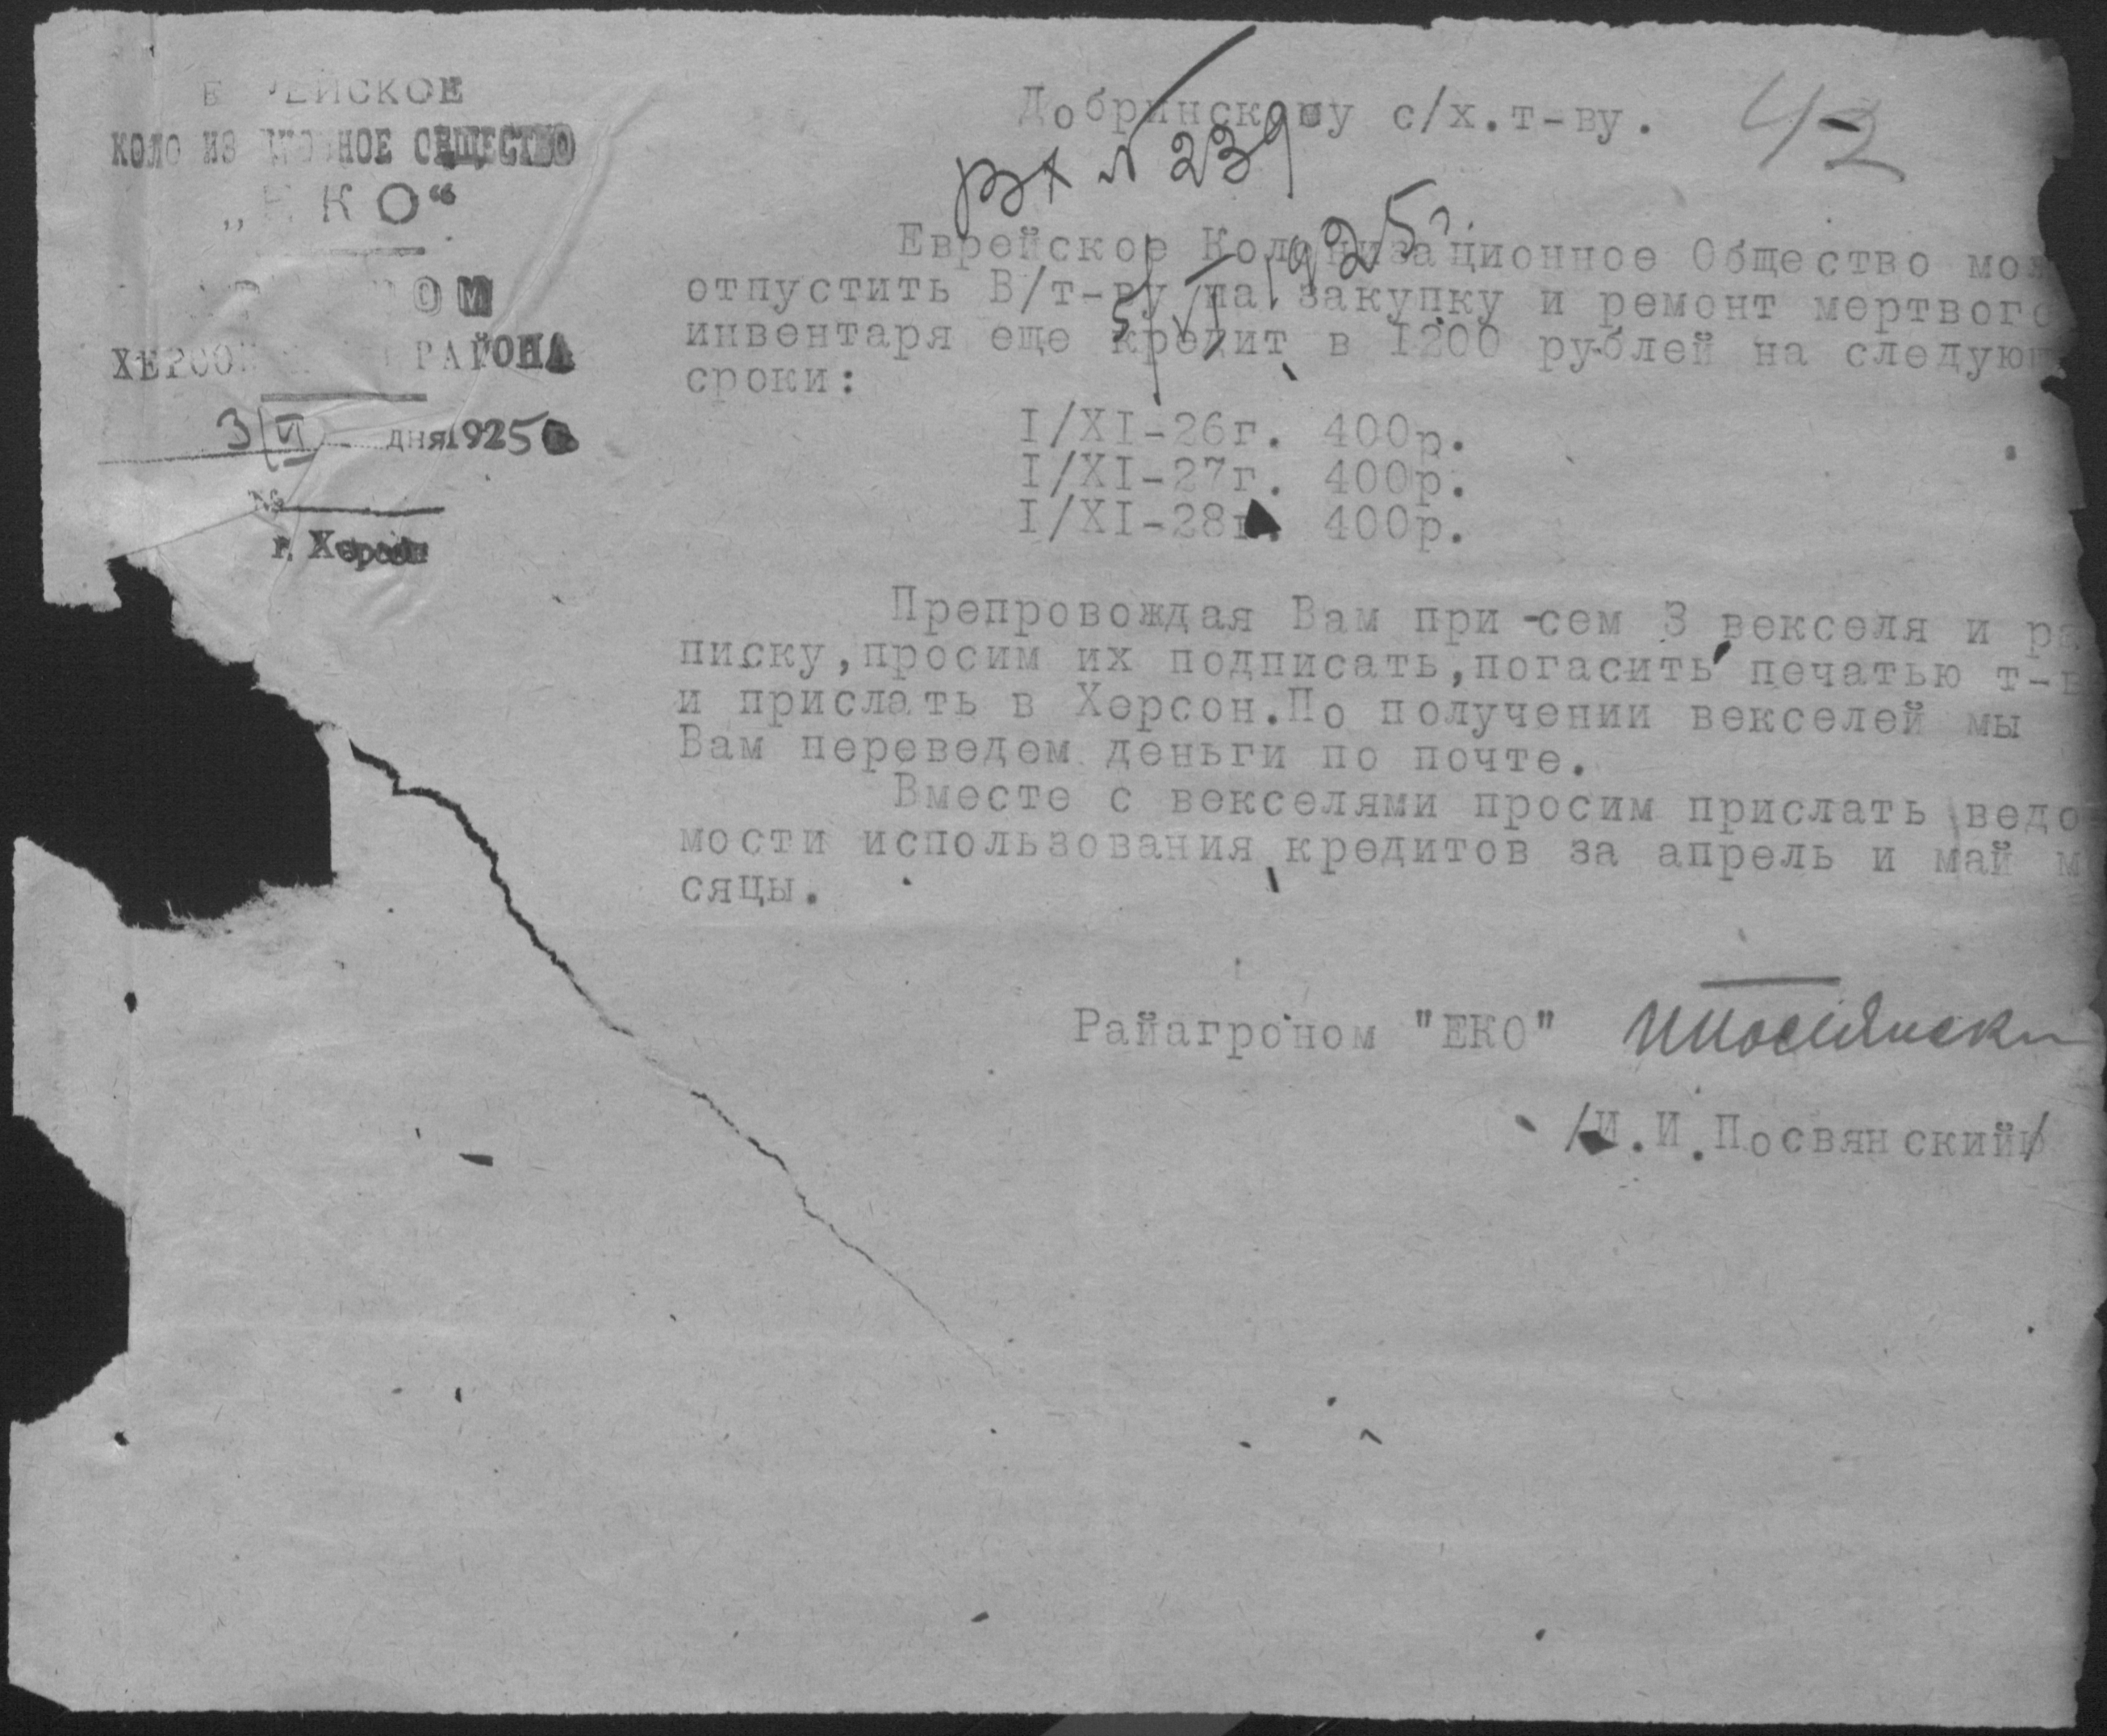 ЕВРЕЙСКОЕ
КОЛОНИЗАЦИОННОЕ ОБЩЕСТВО
„ЕКО“
ХЕРСОН РАЙОНА
3/VI дня 1925
№
г. Херсон
Добринскому с/х.т-ву.
42
вх № 239
5/VI 1925г.
Еврейское Колонизационное Общество мож
отпустить В/т-ву на закупку и ремонт мертвого
инвентаря еще кредит в 1200 рублей на следующ
сроки:
I/XI-26г. 400р.
I/XI-27г. 400р.
I/XI-28г. 400р.
Препровождая Вам при-сем 3 векселя и ра
писку,просим их подписать,погасить печатью т-в
и прислать в Херсон.По получении векселей мы
Вам переведем деньги по почте.
Вместе с векселями просим прислать ведо-
мости использования кредитов за апрель и май ме
сяцы.
Райагроном "ЕКО" ИПосвянски
/И.И.Посвянский/